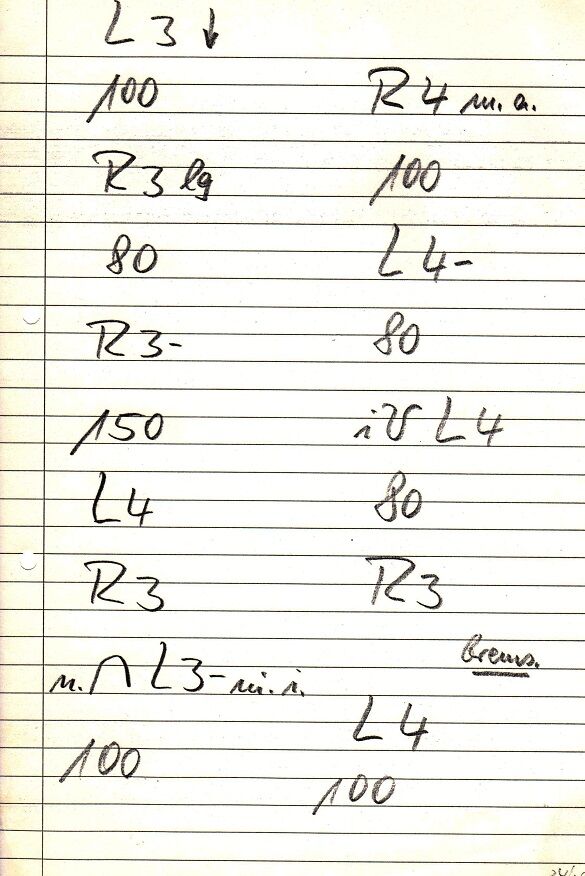 L 3 ↓
100
R 3 lg
80
R 3-
150
L 4
R 3
n. ∩ L 3- ni. i.
100
R 4 m. a.
100
L 4-
80
i V L 4
80
R 3
brems.
L 4
100